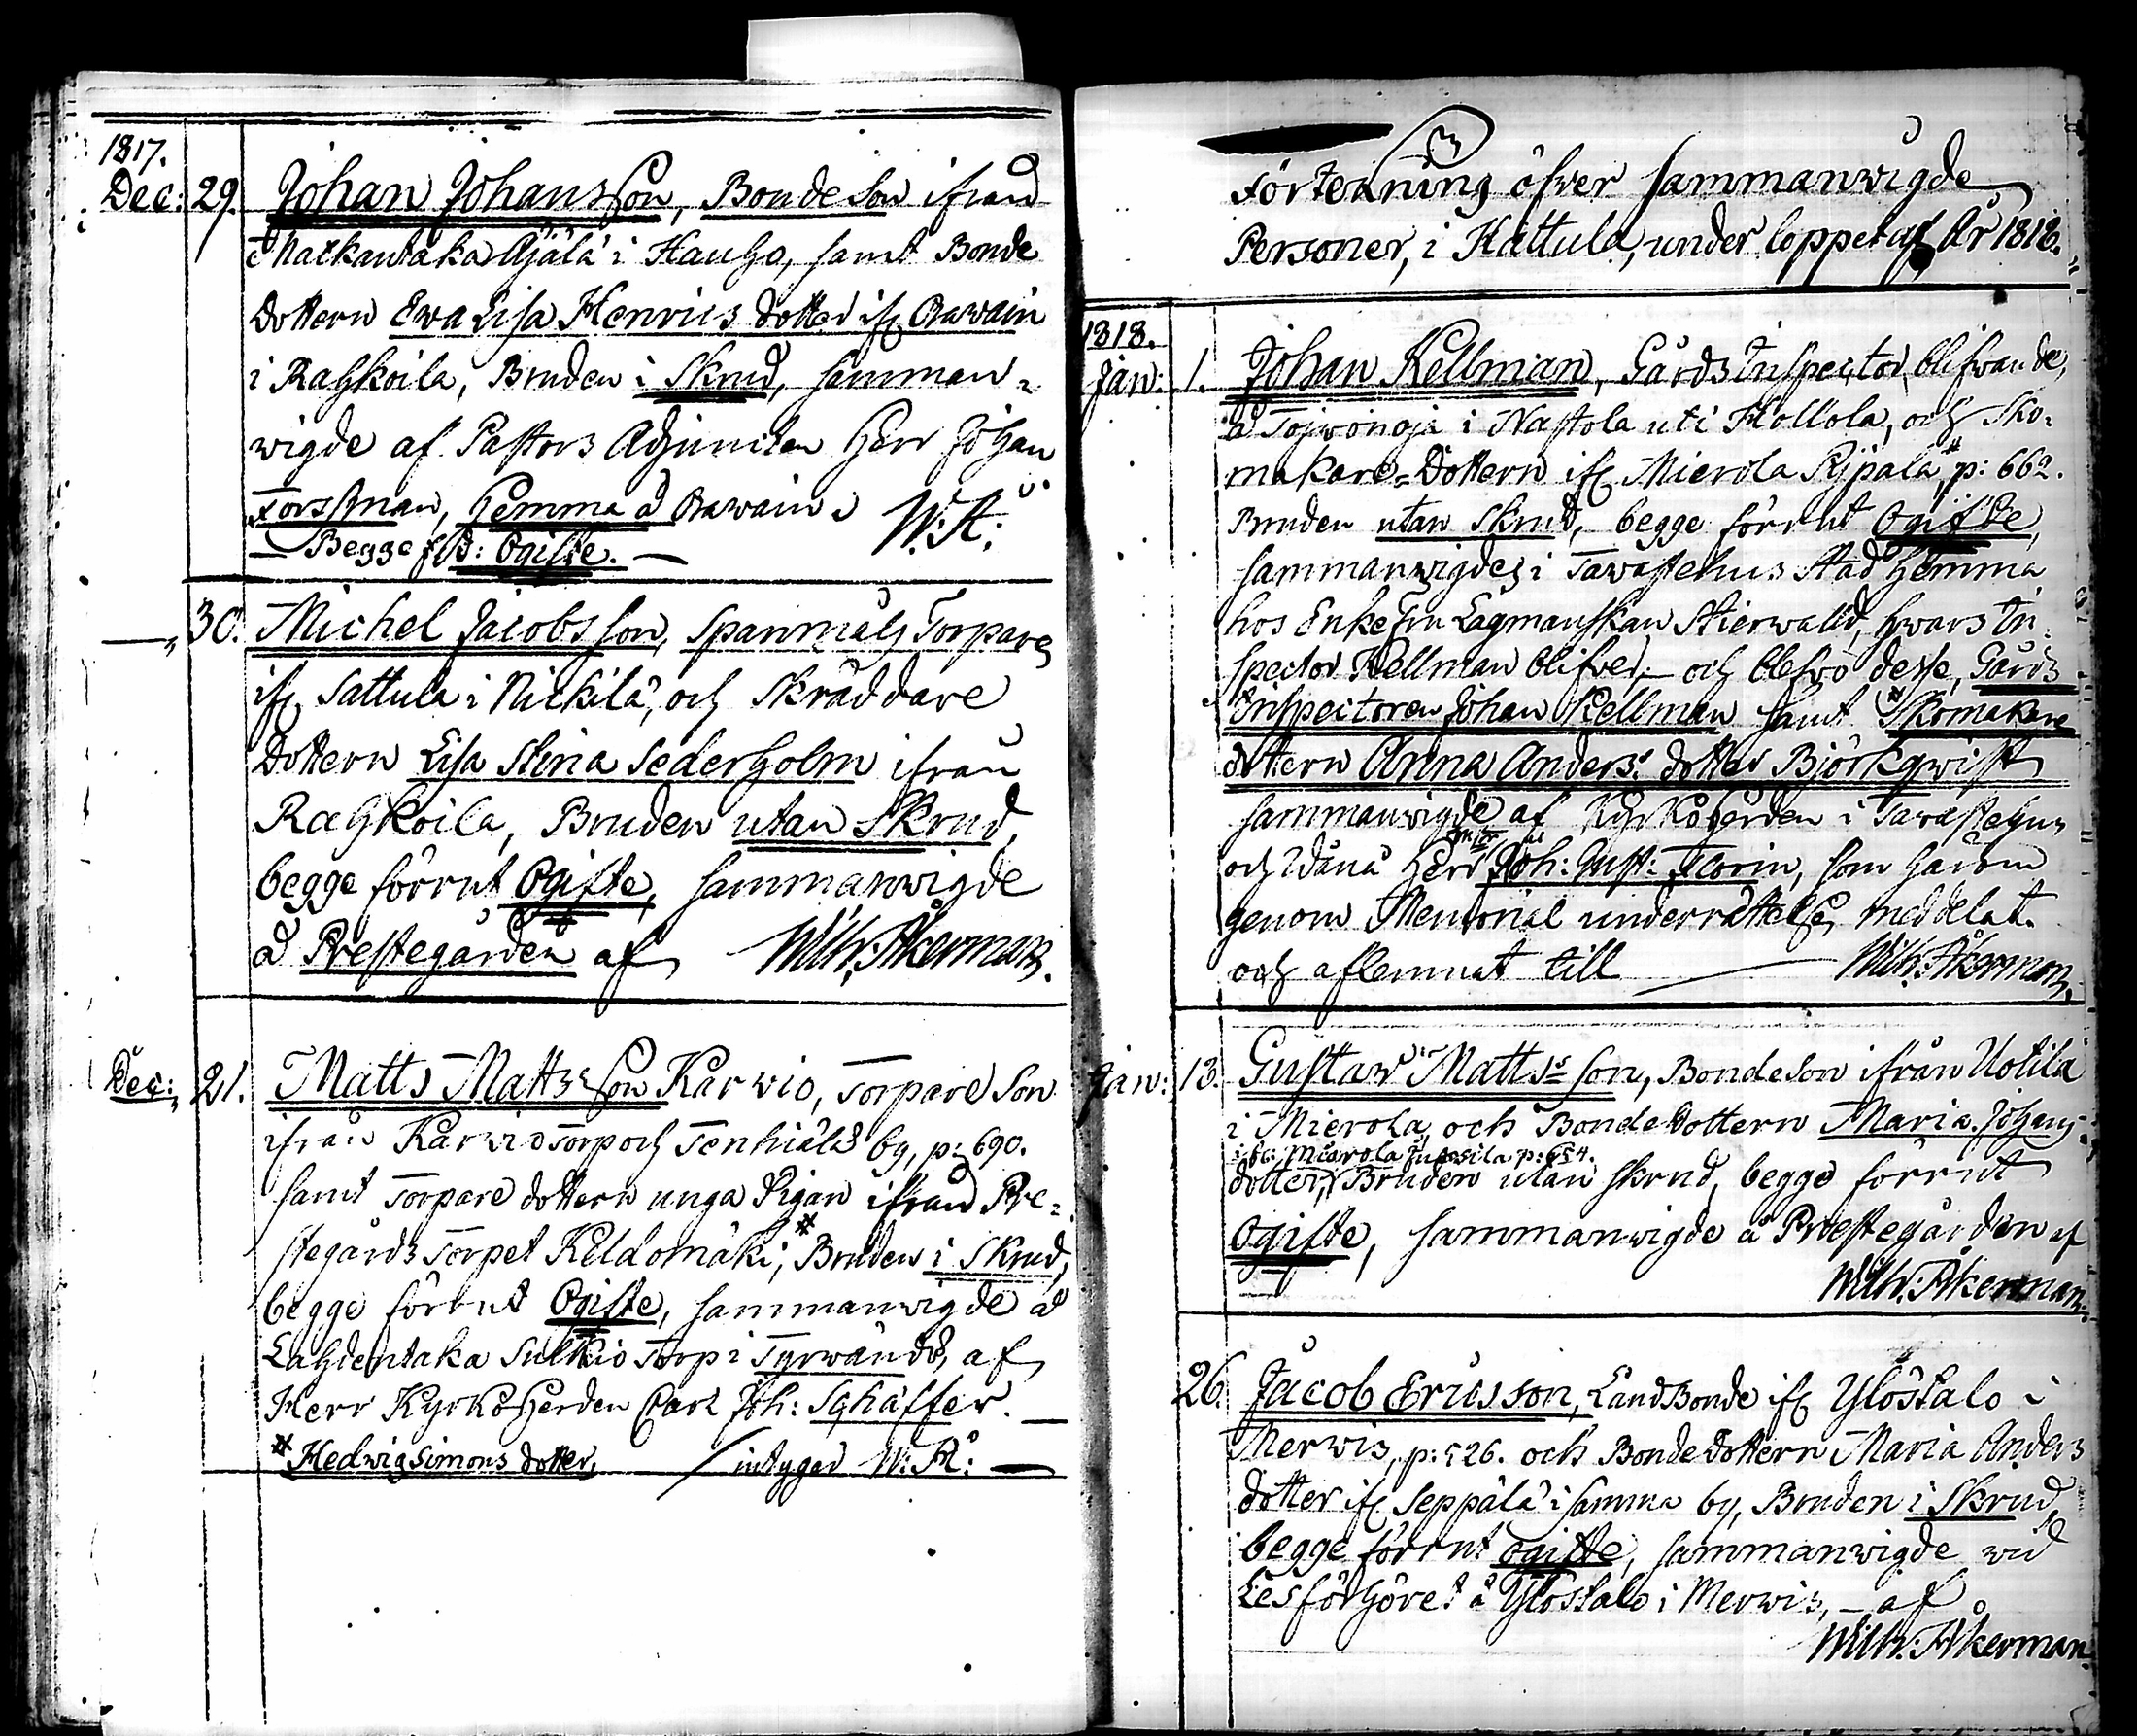 1817.
Dec: 29. Johan Johansson, Bondeson ifrån
Matkantaka Äjälä i Hauho, samt Bonde
dottern Ewa Lisa Henrics dotter ifr. Rawain
i Rahkoila, Bruden i Skrud, samman-
wigde af Pastors Adjuncten Herr Johan
Forssman, hemma å Rawain. W:Å:
— Begge f.d: Ogifte. —
—„ 30. Michel Jacobsson, Spanmåls Torpare
ifr. Sattula i Nickilä, och Skräddare
Dottern Lisa Stina Sederholm ifrån
Rahkoila, Bruden utan Skrud,
begge förrut Ogifte, sammanwigde
å Prestegården af Wilh: Åkerman.
Dec: 21. Matts Mattsson Karwio, Torpare Son
ifrån Karwio Torp och Tenhiälä by, p: 690.
samt Torpare dottern unga Pigan ifrån Pre-
stegårds Torpet Kildomäki,* Bruden i Skrud,
begge förrut Ogifte, sammanwigde å
Lahdentaka Sulkio Torp i Tyrwändö, af
Herr Kyrkoherden Carl Joh: Schäffer. —
* Hedwig Simons dotter, / intygar W: Å: —
Förteckning öfwer sammanwigde
Personer, i Hattula, under loppet af År 1818.
1818.
Jan: 1. Johan Kellman, Gårds Inspector, blifwande,
å Toiwonoja i Nastola uti Hollola, och Sko-
makare-Dottern ifr. Mierola Pijpala,* p: 662.
Bruden utan Skrud, begge förrut Ogifte,
sammanwigdes i Tawastehus Stad hemma
hos Enke Fru Lagmanskan Stierwald, hwars In-
spector Kellman blifwer, — och blefwo desse, Gårds
Inspectoren Johan Kellman samt *Skomakare
dottern Anna Anders: dotter Björkqwist
sammanwigde af Kyrkoherden i Tawastehus
och Wånå Herr Joh: Gust: Florin, som härom
genom Memorial underrättelse meddelat.
och aflemnat till — Wilh: Åkerman.
Jan: 13. Gustaw Matts: son, Bondeson ifrån Uotila
i Mierola, och Bonde dottern Maria Johans-
ifr: Mierola Jussila p: 654.
dotter, Bruden utan skrud, begge förrut
Ogifte, sammanwigde å Prestegården af
Wilh: Åkerman.
26. Jacob Ericsson, Landbonde ifr. Ylöstalo i
Merwis, p: 526. och Bonde dottern Maria Anders
dotter ifr. Seppälä i samma by, Bruden i Skrud,
begge förrut ogifte, sammanwigde wid
Lesförhöret å Ylöstalo i Merwis, — af
Wilh: Åkerman.